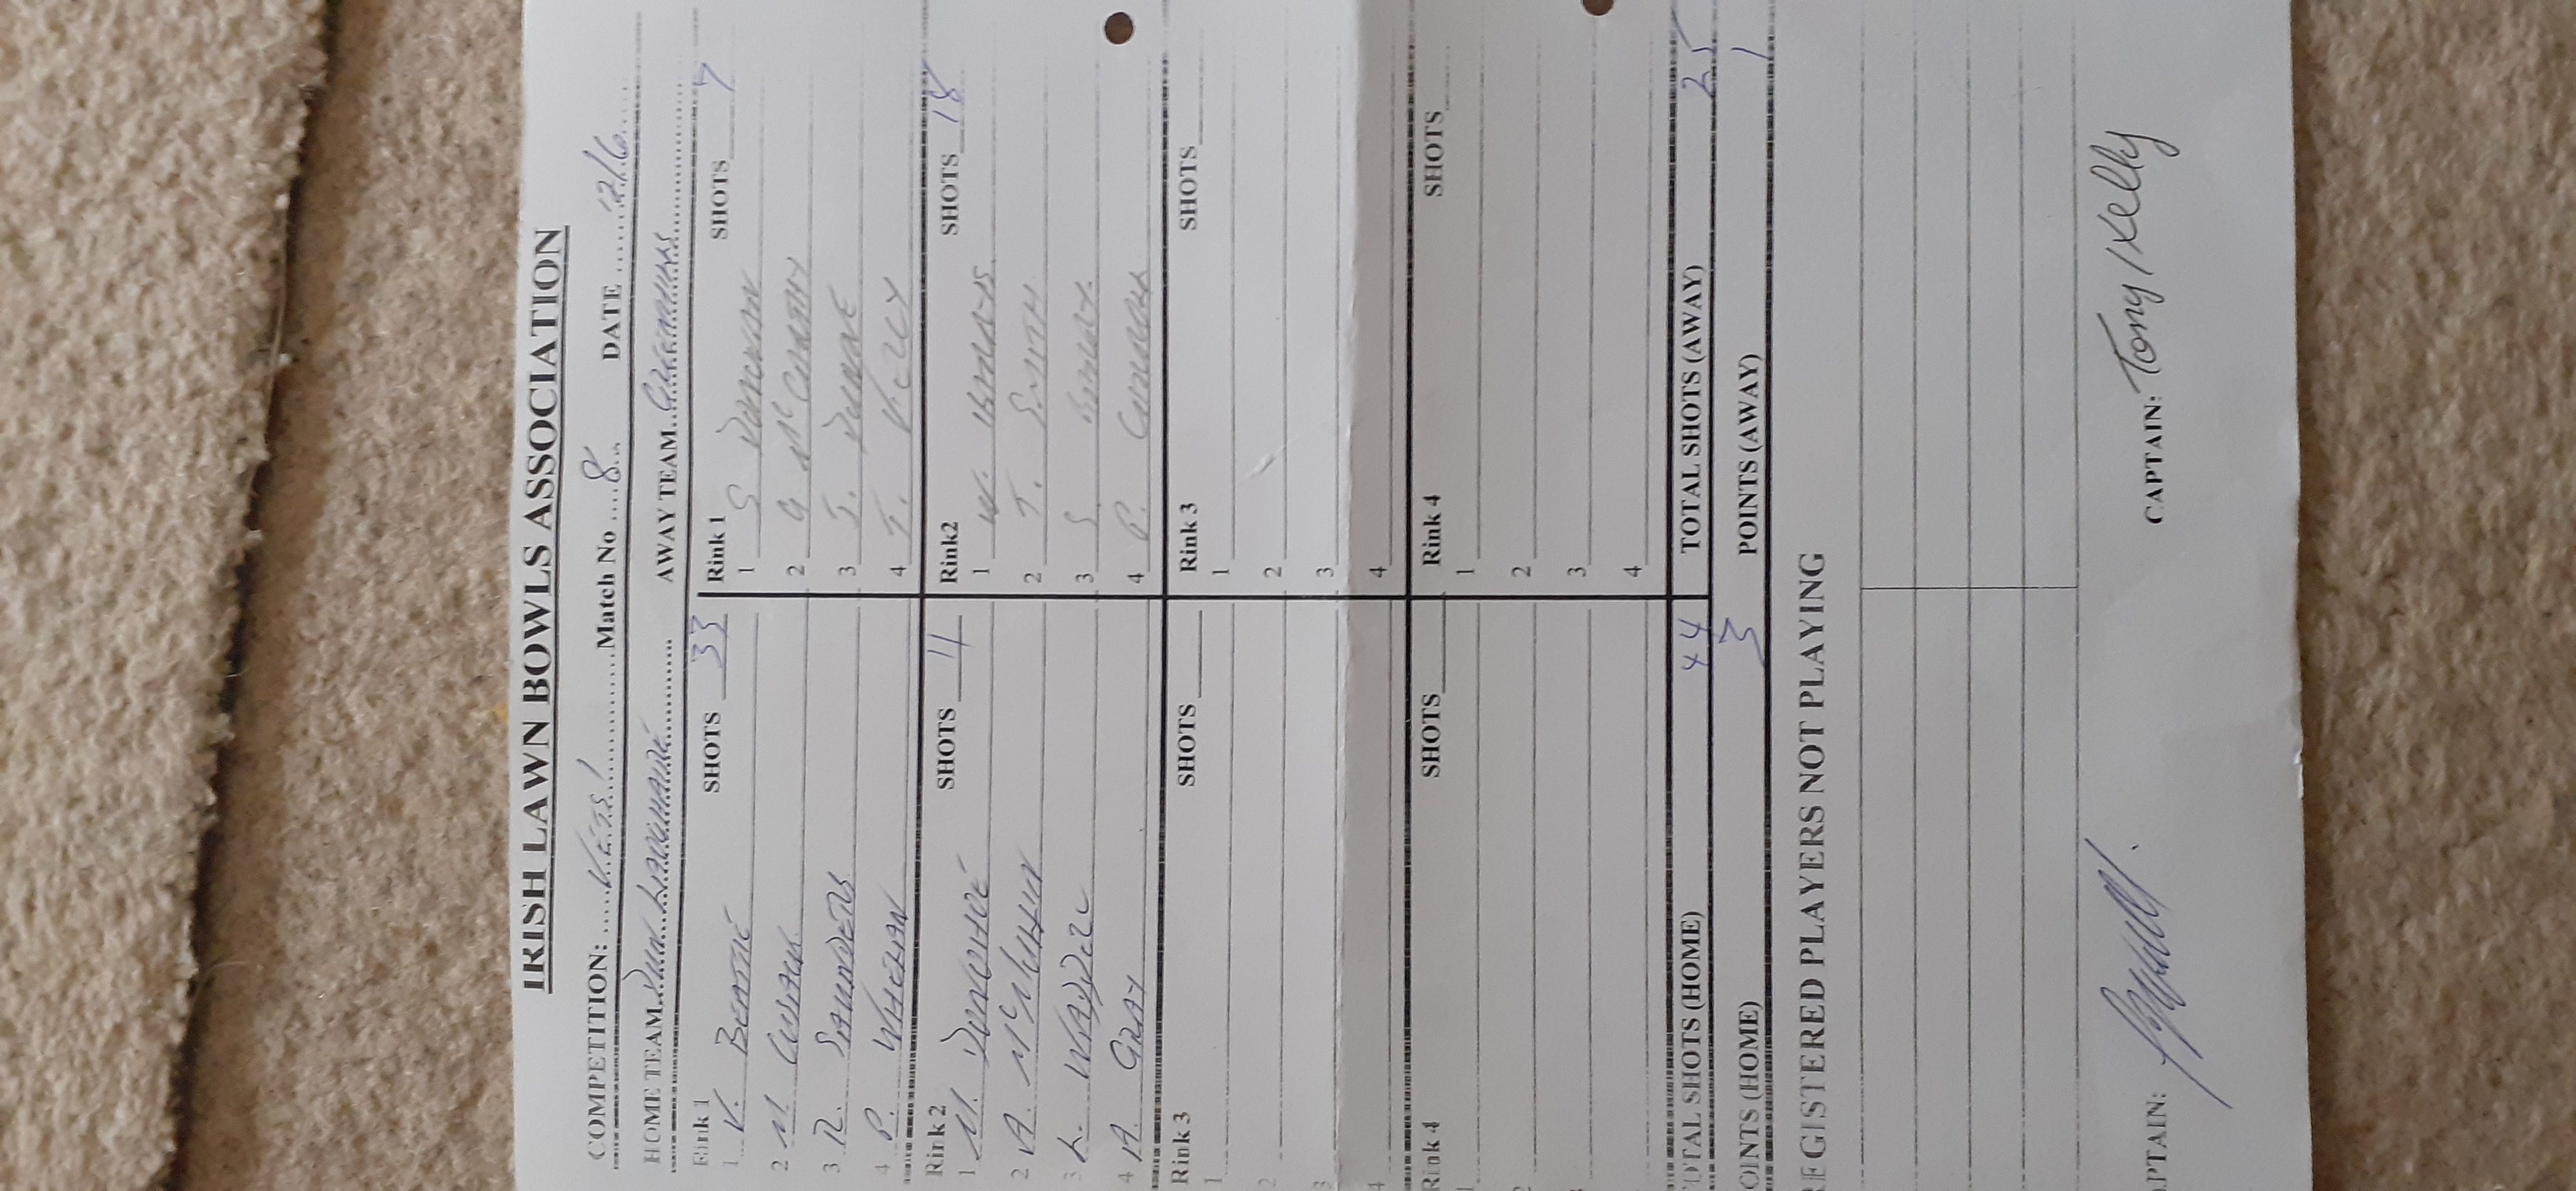 IRISH LAWN BOWLS ASSOCIATION
COMPETITION: Vets 1 Match No 8 DATE 12/6
HOME TEAM Dun Laoghaire AWAY TEAM
Rink 1 SHOTS 33 Rink 1 SHOTS 7
1 V. BEATTIE 1 S
2 M. CUSACK 2 G McCARTHY
3 R. SAUNDERS 3 J. DUNNE
4 P. WHELAN 4 T. KELLY
Rink 2 SHOTS 11 Rink2 SHOTS 18
1 M. DONOHOE 1 W.
2 A. 2 T. SMITH
3 L. 3 S.
4 A. GRAY 4 P.
Rink 3 SHOTS Rink 3 SHOTS
1 1
2 2
3 3
4 4
Rink 4 SHOTS Rink 4 SHOTS
1 1
2 2
3 3
4
TOTAL SHOTS (HOME) 44 TOTAL SHOTS (AWAY) 25
POINTS (HOME) 3 POINTS (AWAY) 1
REGISTERED PLAYERS NOT PLAYING
CAPTAIN: CAPTAIN: Tony Kelly